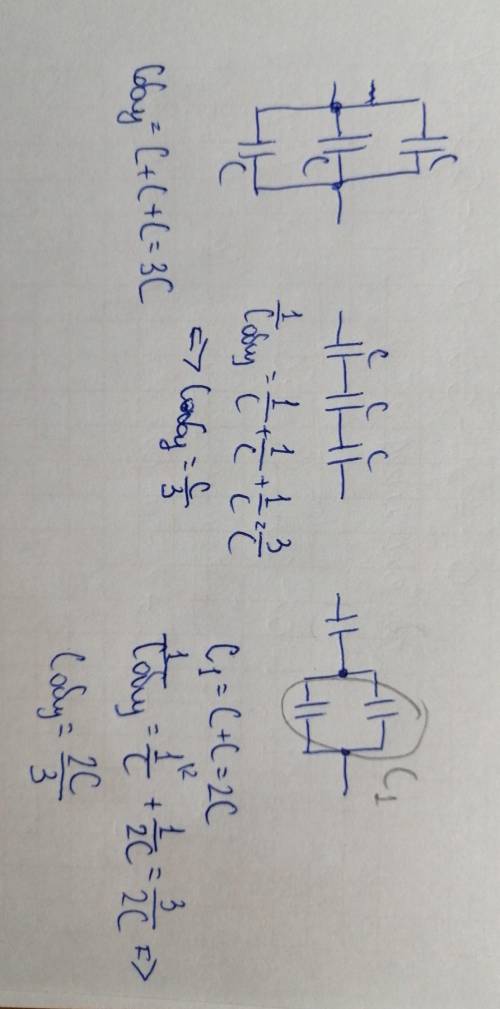 C
C
C
Cобщ = C + C + C = 3C
C C C
1/Cобщ = 1/C + 1/C + 1/C = 3/C
=> Cобщ = C/3
C₁
C₁ = C + C = 2C
1/Cобщ = 1\2/C + 1/2C = 3/2C =>
Cобщ = 2C/3